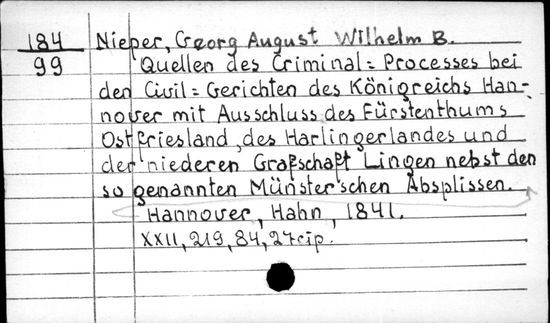 184 Nieper, Georg August Wilhelm B.
99 Quellen des Criminal=Processes bei
den Civil=Gerichten des Königreichs Han-
nover mit Ausschluss des Fürstenthums
Ostfriesland, des Harlingerlandes und
der niederen Grafschaft Lingen nebst den
so genannten Münster'schen Absplissen.
Hannover, Hahn, 1841.
XXII, 219, 84, 27